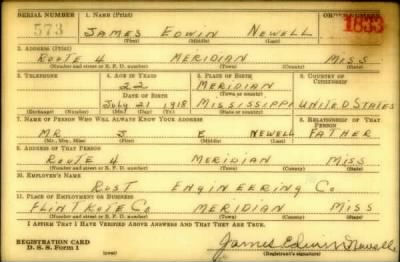 SERIAL NUMBER 1. NAME (Print) ORDER NUMBER
573 JAMES EDWIN NEWELL 1833
(First) (Middle) (Last)
2. ADDRESS (Print)
ROUTE 4 MERIDIAN MISS
(Number and street or R. F. D. number) (Town) (County) (State)
3. TELEPHONE 4. AGE IN YEARS 5. PLACE OF BIRTH 6. COUNTRY OF CITIZENSHIP
22 MERIDIAN
DATE OF BIRTH (Town or county)
July 21 1918 MISSISSIPPI UNITED STATES
(Exchange) (Number) (Mo.) (Day) (Yr.) (State or country)
7. NAME OF PERSON WHO WILL ALWAYS KNOW YOUR ADDRESS 8. RELATIONSHIP OF THAT PERSON
MR J E NEWELL FATHER
(Mr., Mrs., Miss) (First) (Middle) (Last)
9. ADDRESS OF THAT PERSON
ROUTE 4 MERIDIAN MISS
(Number and street or R. F. D. number) (Town) (County) (State)
10. EMPLOYER'S NAME
RUST ENGINEERING CO
11. PLACE OF EMPLOYMENT OR BUSINESS
FLINTKOTE CO MERIDIAN MISS
(Number and street or R. F. D. number) (Town) (County) (State)
I AFFIRM THAT I HAVE VERIFIED ABOVE ANSWERS AND THAT THEY ARE TRUE.
REGISTRATION CARD
D. S. S. Form 1 (over) James Edwin Newell
(Registrant's signature)